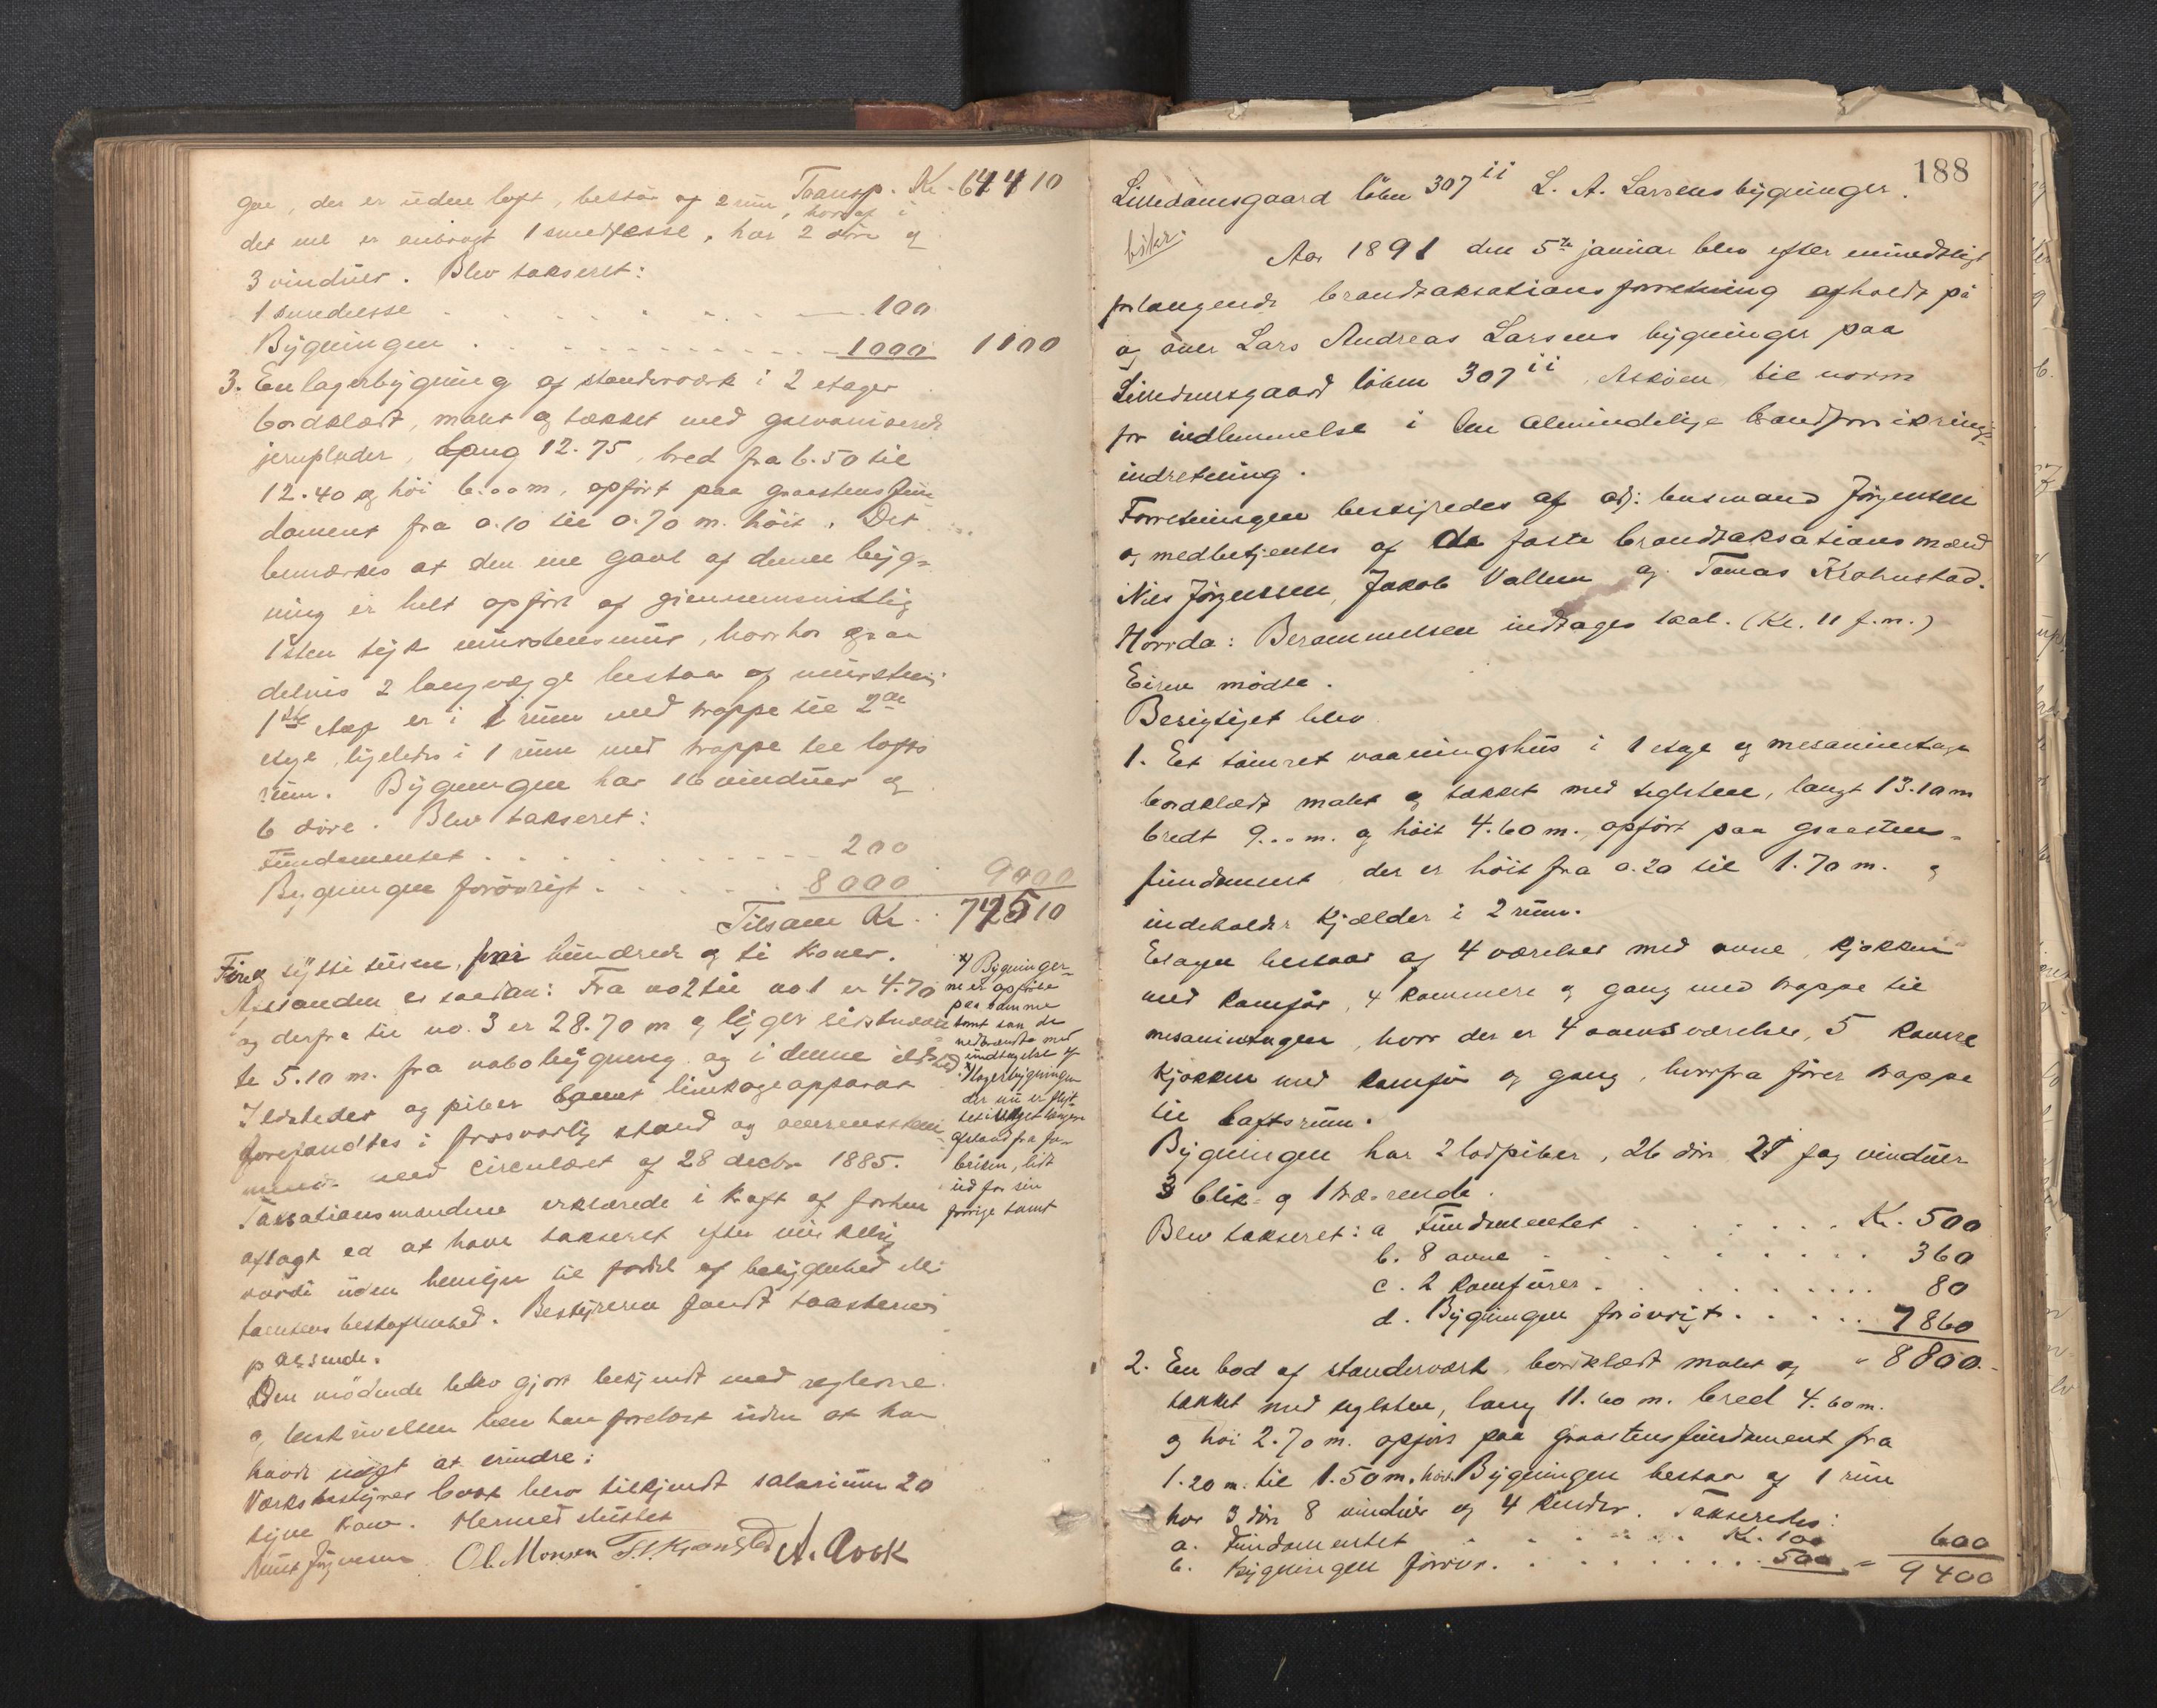 Transp. Kr. 64410
gae, der er uden loft, bestaar af 2 rum, hvoraf i
det ene er anbragt 1 smedjeesse, har 2 döre og
3 vinduer. Blev takseret:
1 smedeesse 100
Bygningen 1000 1100
3. En lagerbygning af standerværk i 2 etager
bordklædt, malet og tækket med galvaniserede
jernplader, lang 12.75, bred fra 6.50 til
12.40 og höi 6.00 m, opfört paa graastensfun
dament fra 0.10 til 0.70 m. höit. Det
bemærkes at den ene gavl af denne byg-
ning er helt opfört af gjennemsnitlig
1 sten tyk murstensmur, hvorhos
delvis 2 langvægge bestaar af mursten.
1ste etage er i 1 rum med trappe til 2den
etage, ligeledes i 1 rum med trappe til lofts
rum. Bygningen har 16 vinduer og
6 döre. Blev takseret:
Fundamentet 200
Bygningen forövrigt 8000 9000
Tilsam. Kr. 72510
sytti tusen, hundrede og ti kroner.
Afstanden er saadan: Fra no 2 til no 1 er 4.70
og derfra til no. 3 er 28.70 m og ligger
te 5.10 m. fra nabobygning og i denne ildsted
Ildsteder og piber samt linkageapparat
forefandtes i forsvarlig stand og overensstem
mende med circulæret af 28 decbr 1885.
Taksationsmændene erklærede i kraft af forhen
aflagt ed at have takseret efter virkelig
værdi uden hensyn til fordel af beliggenhed eller
tomtens beskaffenhed. Bestyreren fandt taksterne
passende.
Den mödende blev gjort bekjendt med reglerne
og beskrivelsen blev ham forelæst uden at han
havde noget at erindre.
Værksbestyrer Cook blev tilkjendt salarium 20
tyve kroner. Hermed sluttet
Knut Jörgensen Ol. Monsen A. Cook
*) Bygninger-
ne er opförte
paa samme
tomt som de
nedbrændte med
undtagelse af
lagerbygningen
der nu er flyt-
tet
afstand fra fa-
briken, lidt
ud for sin
forrige tomt
188
Lilledamsgaard löbn 307 ii L. A. Larsens bygninger.
Aar 1891 den 5te januar blev efter mundtligt
forlangende brandtaksationsforretning afholdt på
og over Lars Andreas Larsens bygninger paa
Lilledamsgaard löbn 307 ii, Asköen, til norm
for indlemmelse i den almindelige brandforsikrings-
indretning.
Forretningen bestyredes af adj: lensmand Jörgensen
og medbetjentes af de faste brandtaksationsmænd
Nils Jörgensen, Jakob Vallen og Tomas Krohnstad.
Hvorda: Berammelsen indtages skal. (Kl. 11 f.m.)
Eieren mödte.
Besigtiget blev
1. Et tömret vaaningshus i 1 etage og mesaninetage
bordklædt malet og tækket med teglsten, langt 13.10 m
bredt 9.00 m. og höit 4.60 m., opfört paa graastens-
fundament, der er höit fra 0.20 til 1.70 m. og
indeholder kjælder i 2 rum.
Etagen bestaar af 4 værelser med ovne, kjökken
med komfür, 4 kammere og gang med trappe til
mesaninetagen, hvor der er 4 ovnsværelser, 5 kamre
kjökken med komfür og gang, hvorfra förer trappe
til loftsrum.
Bygningen har 2 lodpiber, 26 döre 27 fag vinduer
3 blik- og 1 trærende.
Blev takseret: a Fundamentet Kr. 500
b. 8 ovne 360
c. 2 komfürer 80
d. Bygningen forövrigt 7860
2. En bod af standerværk, bordklædt malet og " 8800.-
tækket med teglsten, lang 11.60 m. bred 4.60 m.
og höi 2.70 m. opfört paa graastensfundament fra
1.20 m. til 1.50 m. höit. Bygningen bestaar af 1 rum
har 3 döre 8 vinduer og 4 Takseredes:
a. Fundamentet Kr. 100
b. Bygningen forövr. 500 " 600
9400